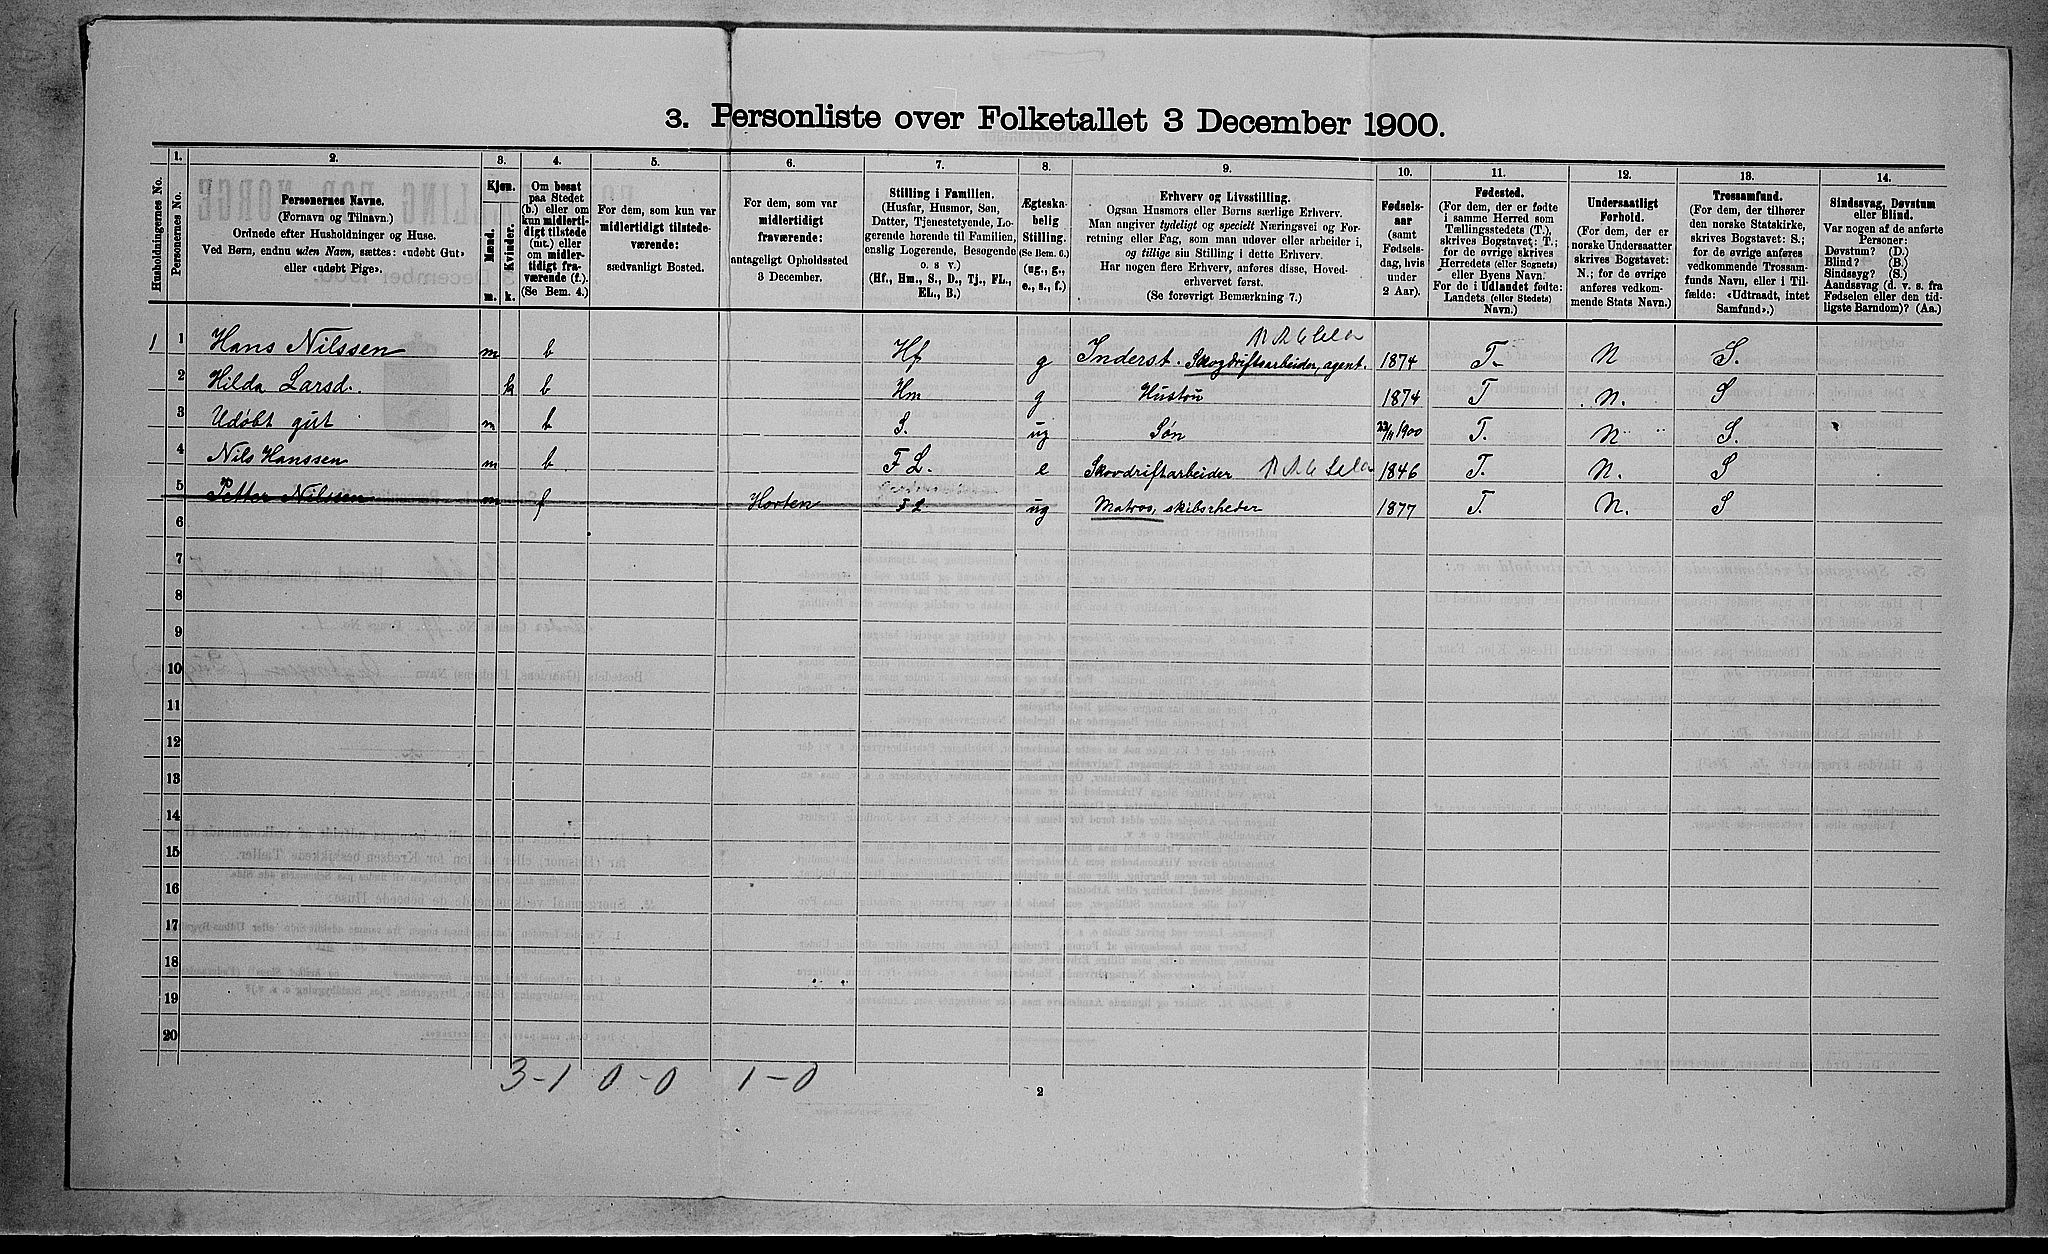 3. Personliste over Folketallet 3 December 1900.
Husholdningernes No.
1.
Personernes No.
2.
Personernes Navne.
(Fornavn og Tilnavn.)
Ordnede efter Husholdninger og Huse.
Ved Børn, endnu uden Navn, sættes: «udøbt Gut»
eller «udøbt Pige».
3.
Kjøn.
Mænd.
Kvinder.
m.
k.
4.
Om bosat
paa Stedet
(b.) eller om
kun midlerti-
digt tilstede
(mt.) eller
om midler-
tidigt fra-
værende (f.).
(Se Bem. 4.)
5.
For dem, som kun var
midlertidigt tilstede-
værende:
sædvanligt Bosted.
6.
For dem, som var
midlertidigt
fraværende:
antageligt Opholdssted
3 December.
7.
Stilling i Familien.
(Husfar, Husmor, Søn,
Datter, Tjenestetyende, Lo-
gerende hørende til Familien,
enslig Logerende, Besøgende
o. s v.)
(Hf., Hm., S., D., Tj., FL.,
EL., B.)
8.
Ægteska-
belig
Stilling.
(Se Bem. 6.)
(ug., g.,
e., s., f.)
9.
Erhverv og Livsstilling.
Ogsaa Husmors eller Børns særlige Erhverv.
Man angiver tydeligt og specielt Næringsvei og For-
retning eller Fag, som man udøver eller arbeider i,
og tillige sin Stilling i dette Erhverv.
Har nogen flere Erhverv, anføres disse, Hoved-
erhvervet først.
(Se forøvrigt Bemærkning 7.)
10.
Fødsels-
aar
(samt
Fødsels-
dag, hvis
under
2 Aar).
11.
Fødested.
(For dem, der er fødte
i samme Herred som
Tællingsstedets (T.),
skrives Bogstavet: T.;
for de øvrige skrives
Herredets (eller Sognets)
eller Byens Navn.
For de i Udlandet fødte:
Landets (eller Stedets)
Navn.)
12.
Undersaatligt
Forhold.
(For dem, der er
norske Undersaatter
skrives Bogstavet:
N.; for de øvrige
anføres vedkom-
mende Stats Navn.)
13.
Trossamfund.
(For dem, der tilhører
den norske Statskirke,
skrives Bogstavet: S.;
for de øvrige anføres
vedkommende Trossam-
funds Navn, eller i Til-
fælde: «Udtraadt, intet
Samfund».)
14.
Sindssvag, Døvstum
eller Blind.
Var nogen af de anførte
Personer:
Døvstum? (D.)
Blind? (B.)
Sindssyg? (S.)
Aandssvag (d. v. s. fra
Fødselen eller den tid-
ligste Barndom)? (Aa.)
1 1 Hans Nilssen m b Hf g Inderst. Skogdriftsarbeider, agent. 1874 T. N S.
2 Hilda Larsd. k b Hm g Hustru 1874 T N. S
3 Udøbt gut m b S. ug Søn 23/11 1900 T. N S.
4 Nils Hanssen m b F L. e Skovdriftarbeider 1846 T. N. S
5 Petter Nilssen m f Horten F L ug Matros, skibsrheder 1877 T. N. S
6
7
8
9
10
11
12
13
14
15
16
17
18
19
20
3-1 0-0 1-0
2